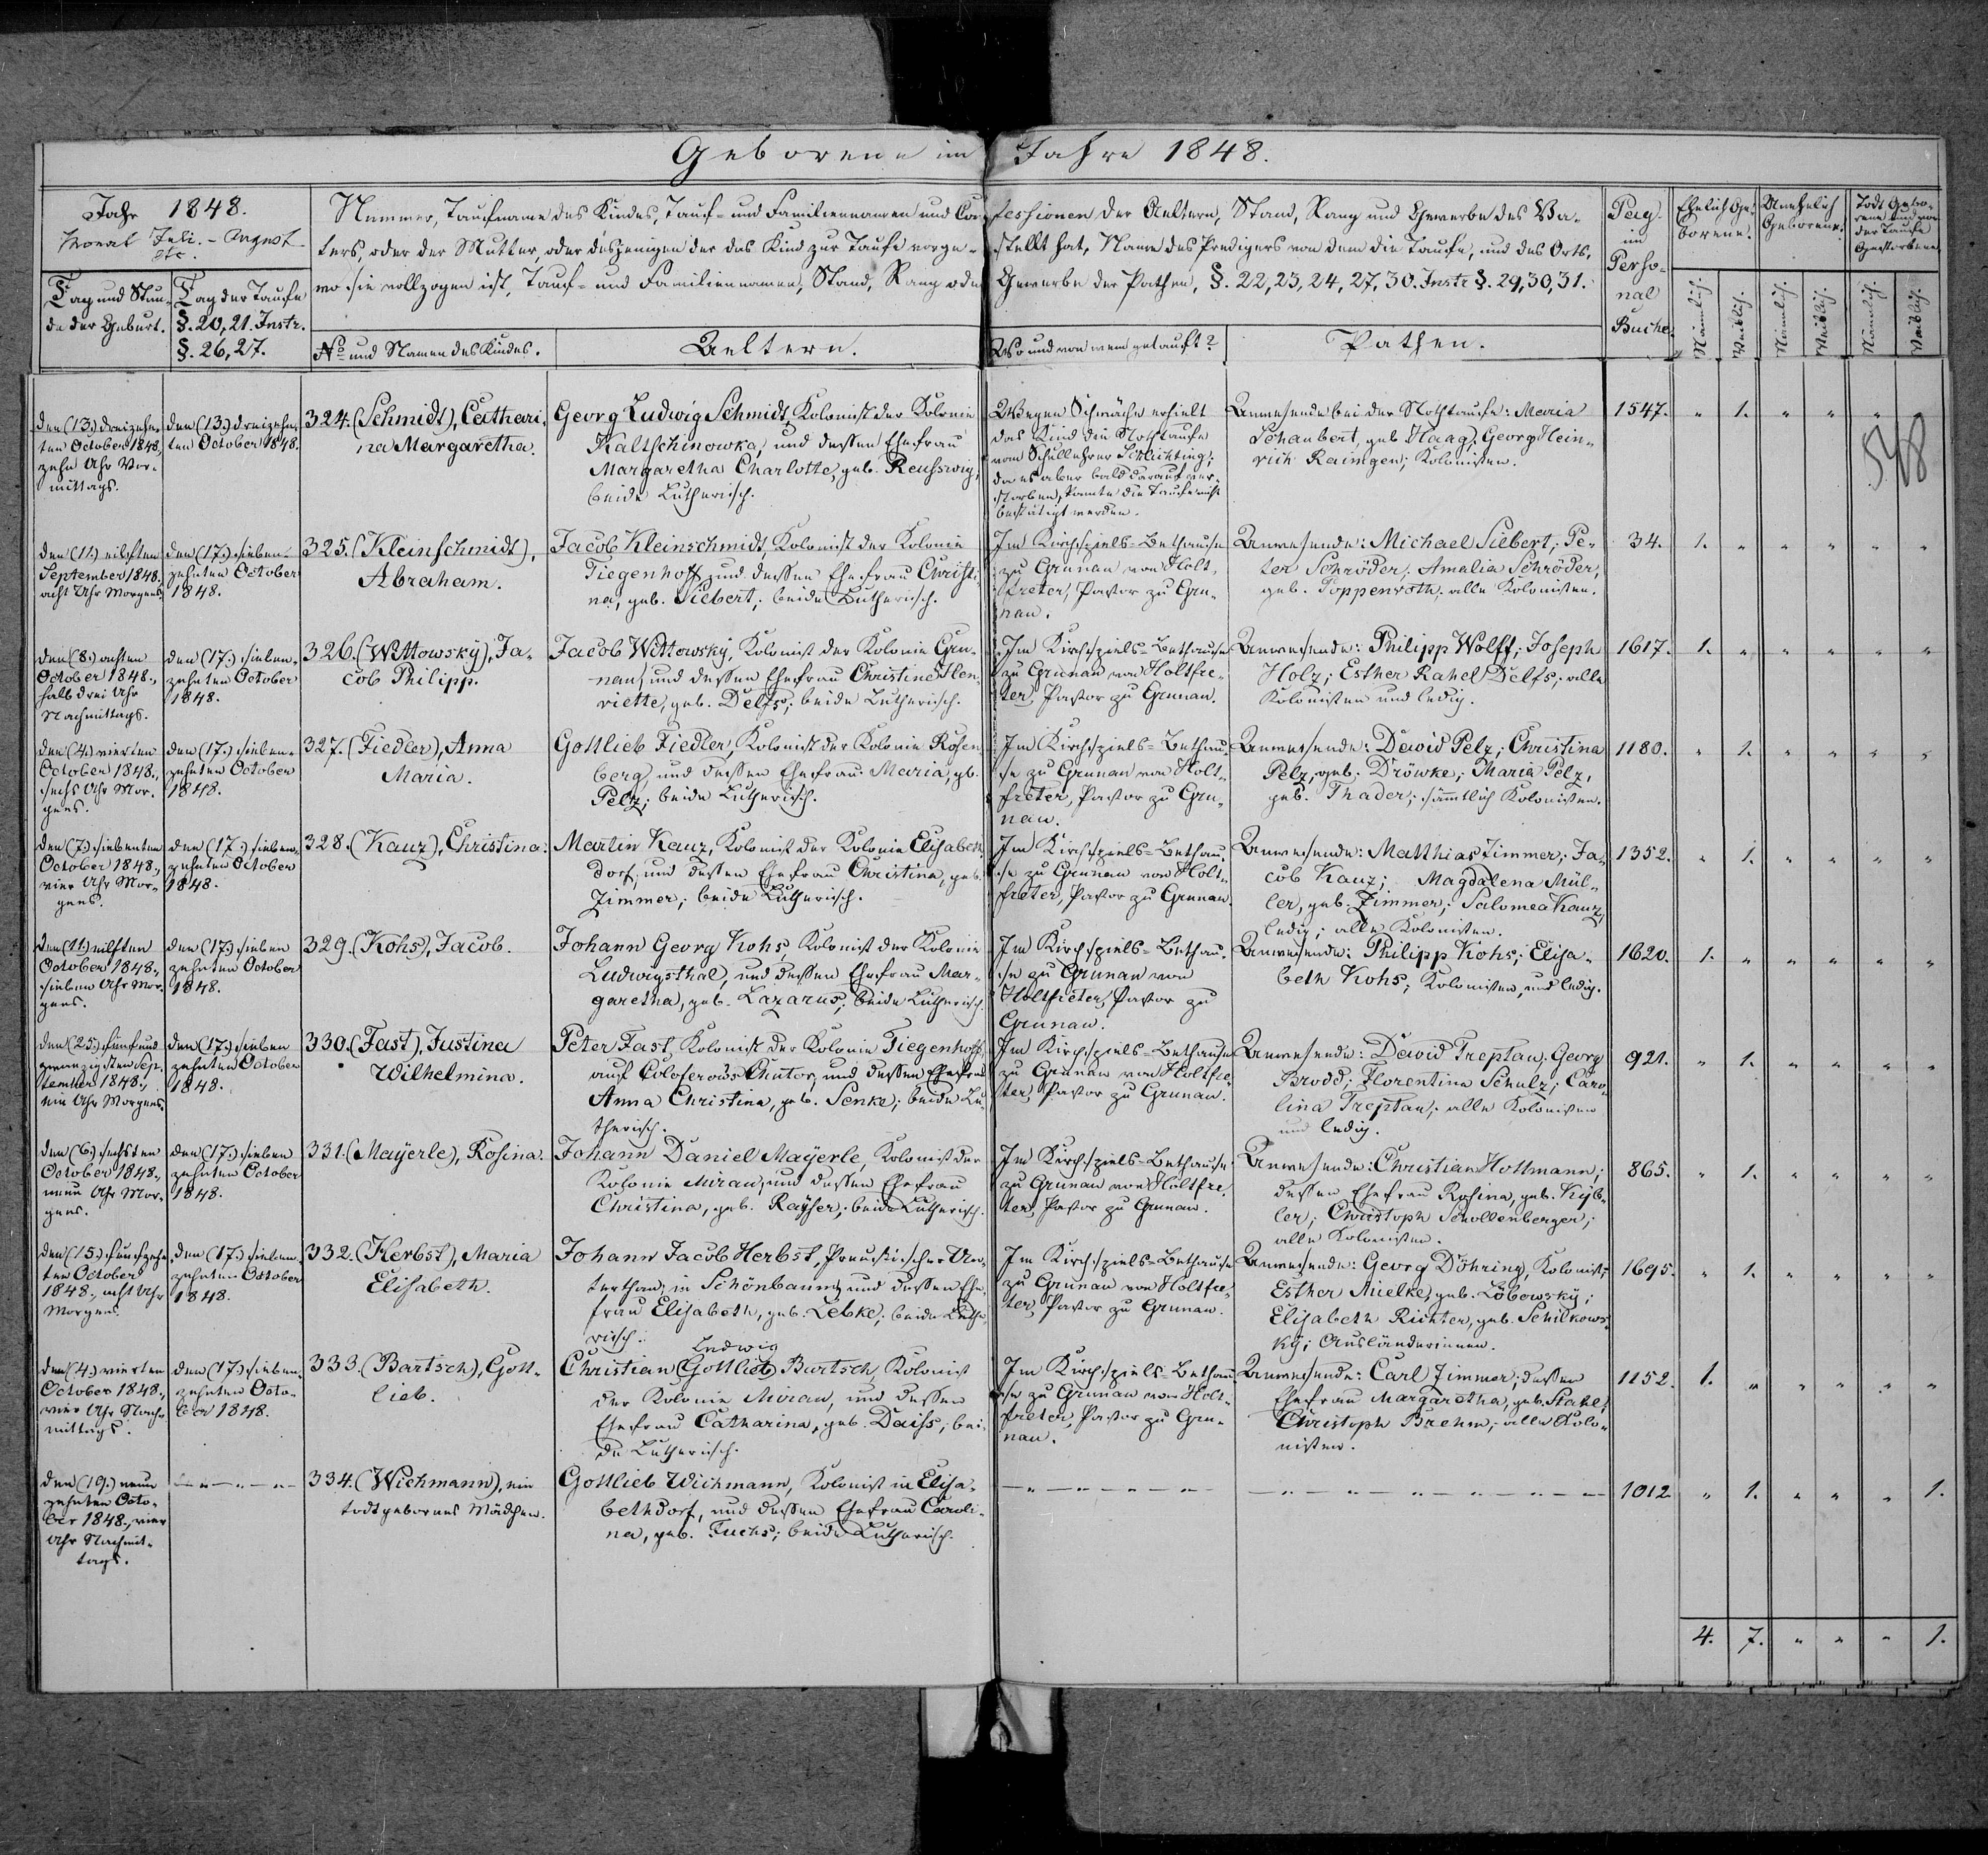 Geborene im Jahre 1848.
Jahr 1848.
Monat Juli. - August
etc.
Tag und Stun-
de der Geburt.
Tag der Taufe
§. 20, 21. Instr.
§. 26, 27.
Nummer, Taufname des Kindes, Tauf- und Familiennamen und Con-
fessionen der Aeltern, Stand, Rang und Gewerbe des Va-
ters, oder der Mutter, oder desjenigen der das Kind zur Taufe vorge-
stellt hat, Name des Predigers von dem die Taufe, und des Orts,
wo sie vollzogen ist, Tauf- und Familiennamen, Stand, Rang oder
Gewerbe der Pathen, §. 22, 23, 24, 27, 30. Instr. §. 29, 30, 31.
No. und Namen des Kindes.
Aeltern.
Wo und von wem getauft?
Pathen.
Pag.
im
Perso-
nal
Buche.
Ehelich Ge-
borene.
Unehelich
Geborene.
Todt Gebo-
rene und vor
der Taufe
Gestorbene.
Männlich.
Weiblich.
Männlich.
Weiblich.
Männlich.
Weiblich.
den (13.) dreizehn-
ten October 1848.,
zehn Uhr Vor-
mittags.
den (13.) dreizehn-
ten October 1848.
324. (Schmidt), Cathari-
na Margaretha.
Georg Ludwig Schmidt, Kolonist der Kolonie
Kaltschinowka, und dessen Ehefrau
Margaretha Charlotte, geb. Reusswig;
beide Lutherisch.
Wegen Schwäche erhielt
das Kind die Nothtaufe
vom Schullehrer Schlichting;
da es aber bald darauf ver-
storben, konnte die Taufe nicht
bestätigt werden.
Anwesende bei der Nothtaufe: Maria
Schaubert, geb. Haag; Georg Hein-
rich Raimgen; Kolonisten.
1547. " 1. " " "
548
den (11.) eilften
September 1848.,
acht Uhr Morgens.
den (17.) sieben-
zehnten October
1848.
325. (Kleinschmidt),
Abraham.
Jacob Kleinschmidt, Kolonist der Kolonie
Tiegenhoff, und dessen Ehefrau Christi-
na, geb. Siebert; beide Lutherisch.
Im Kirchspiels-Bethause
zu Grunau von Holt-
freter, Pastor zu Gru-
nau.
Anwesende: Michael Siebert; Pe-
ter Schröder; Amalia Schröder,
geb. Poppenroth. alle Kolonisten.
34. 1. " " " " "
den (8.) achten
October 1848.,
halb drei Uhr
Nachmittags.
den (17.) sieben-
zehnten October
1848.
326. (Wittowsky), Ja-
cob Philipp.
Jacob Wittowsky, Kolonist der Kolonie Gru-
nau, und dessen Ehefrau Christine Hen-
riette, geb. Delfs; beide Lutherisch.
Im Kirchspiels-Bethause
zu Grunau von Holtfre-
ter, Pastor zu Grunau.
Anwesende: Philipp Wolff; Joseph
Holz; Esther Rahel Delfs; alle
Kolonisten und ledig.
1617. 1. " " " " "
den (4.) vierten
October 1848.,
sechs Uhr Mor-
gens.
den (17.) sieben-
zehnten October
1848.
327. (Fiedler), Anna
Maria.
Gottlieb Fiedler, Kolonist der Kolonie Rosen-
berg, und dessen Ehefrau Maria, gb.
Pelz; beide Lutherisch.
Im Kirchspiels-Bethau-
se zu Grunau von Holt-
freter, Pastor zu Gru-
nau.
Anwesende: David Pelz; Christina
Pelz, geb. Dröwke; Maria Pelz,
geb. Thader; sämmtlich Kolonisten.
1180. " 1. " " " "
den (7.) siebenten
October 1848.,
vier Uhr Mor-
gens.
den (17.) sieben-
zehnten October
1848.
328. (Kauz), Christina.
Martin Kauz, Kolonist der Kolonie Elisabeth-
dorf, und dessen Ehefrau Christina, geb.
Zimmer; beide Lutherisch.
Im Kirchspiels-Bethau-
se zu Grunau von Holt-
freter, Pastor zu Grunau.
Anwesende: Matthias Zimmer; Ja-
cob Kauz; Magdalena Mül-
ler, geb. Zimmer; Salomea Kauz,
ledig; alle Kolonisten.
1352. " 1. " " " "
den (11.) eilften
October 1848.,
sieben Uhr Mor-
gens.
den (17.) sieben
zehnten October
1848.
329. (Kohs), Jacob.
Johann Georg Kohs, Kolonist der Kolonie
Ludwigsthal, und dessen Ehefrau Mar-
garetha, geb. Lazarus; beide Lutherisch.
Im Kirchspiels-Bethau-
se zu Grunau von
Holtfreter, Pastor zu
Grunau.
Anwesende: Philipp Kohs; Elisa-
beth Kohs; Kolonisten, und ledig.
1620. 1. " " " " "
den (25.) fünf und
zwanzigsten Sep-
tember 1848.,
ein Uhr Morgens.
den (17.) sieben
zehnten October
1848.
330. (Fast), Justina
Wilhelmina.
Peter Fast, Kolonist der Kolonie Tiegenhoff,
auf Coloserows Chutor, und dessen Ehefrau
Anna Christina, geb. Senke; beide Lu-
therisch.
Im Kirchspiels-Bethause
zu Grunau von Holtfre-
ter, Pastor zu Grunau.
Anwesende: David Treptau; Georg
Brodd; Florentina Schulz; Caro-
lina Treptau; alle Kolonisten
und ledig.
921. " 1. " " " "
den (6.) sechsten
October 1848.,
neun Uhr Mor-
gens.
den (17.) sieben
zehnten October
1848.
331. (Mayerle), Rosina.
Johann Daniel Mayerle, Kolonist der
Kolonie Mirau, und dessen Ehefrau
Christina, geb. Rayser; beide Lutherisch.
Im Kirchspiels-Bethause
zu Grunau von Holtfre-
ter, Pastor zu Grunau.
Anwesende: Christian Hottmann;
dessen Ehefrau Rosina, geb. Kyb-
ler; Christoph Schollenberger;
alle Kolonisten.
865. " 1. " " " "
den (15.) fünfzehn-
ten October
1848., acht Uhr
Morgens.
den (17.) sieben-
zehnten October
1848.
332. (Herbst), Maria
Elisabeth.
Johann Jacob Herbst, Preussischer Un-
terthan, in Schönbaum, und dessen Ehe-
frau Elisabeth, geb. Lebke; beide Luthe-
risch.
Im Kirchspiels-Bethause
zu Grunau von Holtfre-
ter, Pastor zu Grunau.
Anwesende: Georg Döhring, Kolonist;
Esther Mielke, geb. Löbowsky;
Elisabeth Richter, geb. Schilkows-
ky; Ausländerinnen.
1695. " 1. " " " "
den (4.) vierten
October 1848.,
vier Uhr Nach-
mittags.
den (17.) sieben-
zehnten Octo-
ber 1848.
333. (Bartsch), Gott-
lieb.
Ludwig
Christian (Gottlieb) Bartsch, Kolonist
der Kolonie Mirau, und dessen
Ehefrau Catharina, geb. Daiss; bei-
de Lutherisch.
Im Kirchspiels-Bethau-
se zu Grunau von Holt-
freter, Pastor zu Gru-
nau.
Anwesende: Carl Zimmer; dessen
Ehefrau Margaretha, geb. Stahl;
Christoph Brehm; alle Kolo-
nisten.
1152. 1. " " " " "
den (19.) neun
zehnten Octo-
ber 1848., vier
Uhr Nachmit-
tags.
334. (Wichmann), ein
todtgebornes Mädchen.
Gottlieb Wichmann, Kolonist in Elisa-
bethdorf, und dessen Ehefrau Caroli-
na, geb. Fuchs; beide Lutherisch.
1012. " 1. " " " 1.
4. 7. " " " 1.